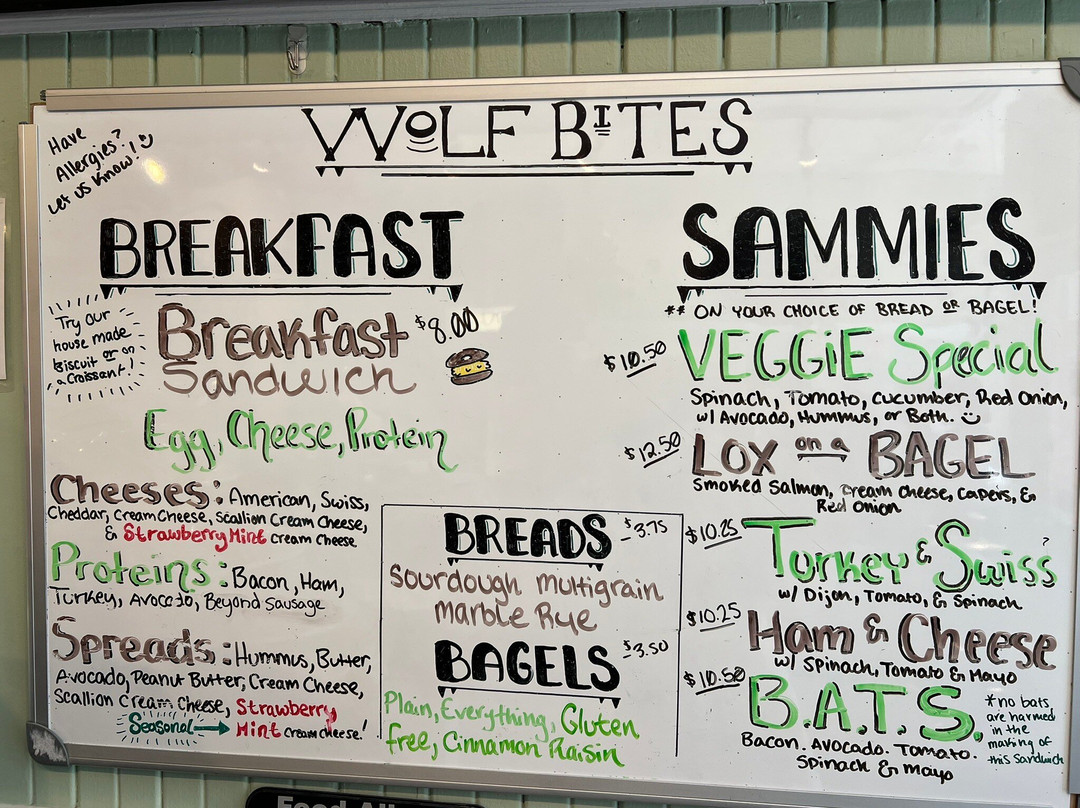 Have
Allergies?
Let us know!
WOLF BITES
BREAKFAST
Try our
house made
biscuit or on
a Croissant!
Breakfast
Sandwich
$8.00
Egg, Cheese, Protein
Cheeses: American, Swiss,
Cheddar, Cream Cheese, Scallion Cream Cheese,
& Strawberry Mint Cream Cheese
Proteins: Bacon, Ham,
Turkey, Avocado, Beyond Sausage
Spreads: Hummus, Butter,
Avocado, Peanut Butter, Cream Cheese,
Scallion Cream Cheese, Strawberry
Seasonal → Mint Cream Cheese!
BREADS $3.75
Sourdough multigrain
marble Rye
BAGELS $3.50
Plain, Everything, Gluten
free, Cinnamon Raisin
SAMMIES
** ON YOUR CHOICE OF BREAD OR BAGEL!
$10.50 VEGGIE Special
Spinach, Tomato, Cucumber, Red Onion,
w/ Avocado, Hummus, or Both.
$12.50 LOX on a BAGEL
Smoked Salmon, Cream Cheese, Capers, &
Red Onion
$10.25 Turkey & Swiss
?
w/ Dijon, Tomato, & Spinach
$10.25 Ham & Cheese
w/ Spinach, Tomato & Mayo
$10.50 B.A.T.S.
Bacon. Avocado. Tomato.
Spinach & Mayo
*no bats
are harmed
in the
making of
this sandwich
Food